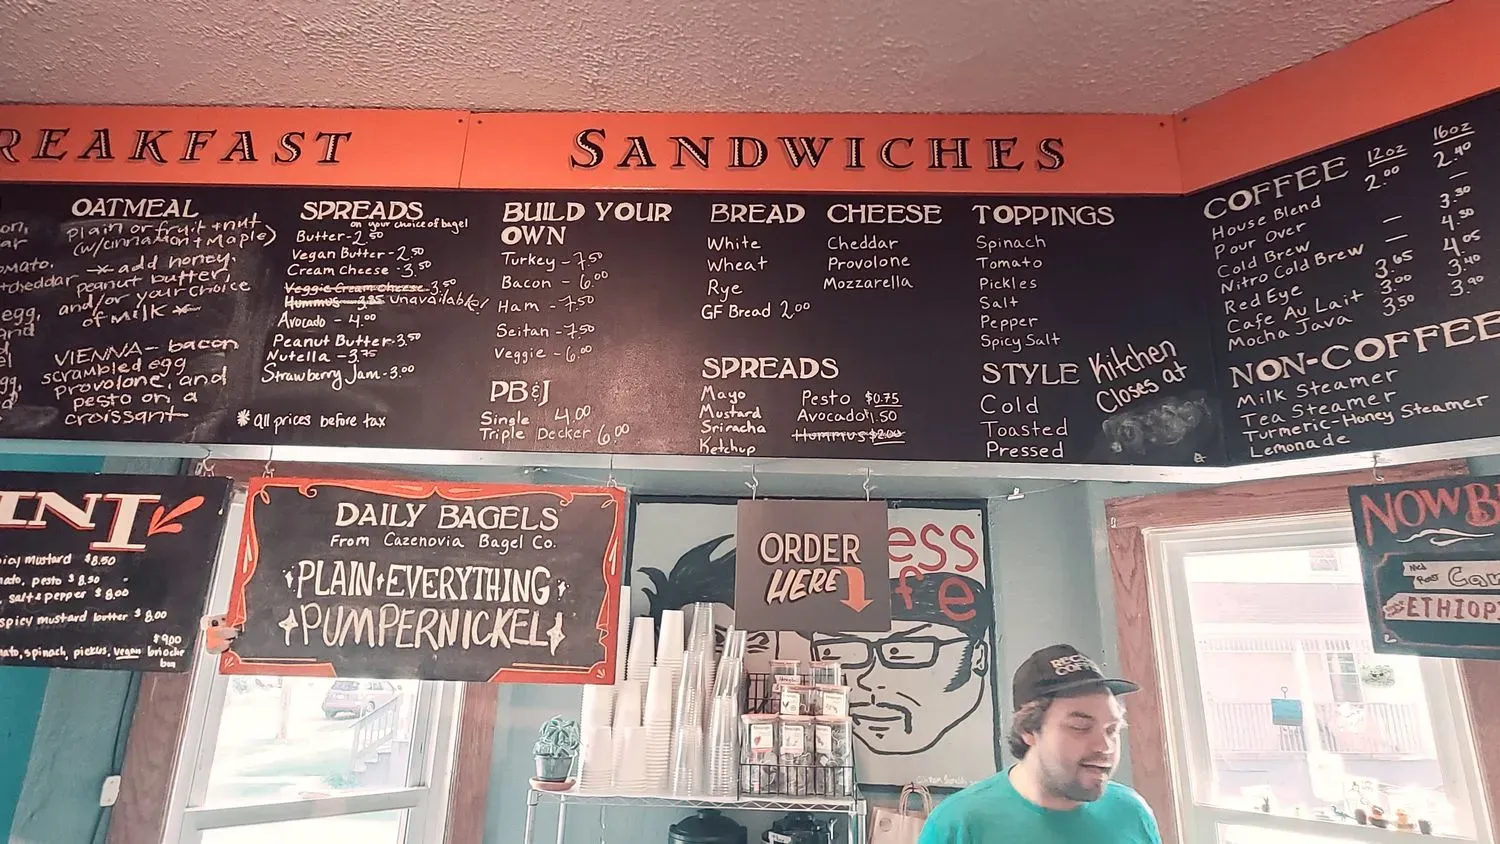 REAKFAST
SANDWICHES
OATMEAL
Plain or fruit + nut
(w/cinnamon + Maple)
add honey,
peanut butter,
and/or your choice
of milk
VIENNA — bacon
scrambled egg
provolone, and
pesto on a
croissant
omato,
cheddar
egg,
and
SPREADS
on your choice of bagel
Butter - 2.50
Vegan Butter - 2.50
Cream Cheese - 3.50
Veggie Cream Cheese - 3.50
Hummus 3.25 unavailable!
Avocado - 4.00
Peanut Butter - 3.50
Nutella - 3.75
Strawberry Jam - 3.00
* All prices before tax
BUILD YOUR
OWN
Turkey - 7.50
Bacon - 6.00
Ham - 7.50
Seitan - 7.50
Veggie - 6.00
PB&J
Single 4.00
Triple Decker 6.00
BREAD
White
Wheat
Rye
GF Bread 2.00
CHEESE
Cheddar
Provolone
Mozzarella
SPREADS
Mayo
Mustard
Sriracha
Ketchup
Pesto $0.75
Avocado 1.50
Hummus $2.00
TOPPINGS
Spinach
Tomato
Pickles
Salt
Pepper
Spicy Salt
STYLE
Cold
Toasted
Pressed
Kitchen
Closes at
COFFEE 12oz 16oz
House Blend 2.00 2.40
Pour Over — —
Cold Brew — 3.30
Nitro Cold Brew — 4.50
Red Eye 3.65 4.05
Cafe Au Lait 3.00 3.40
Mocha Java 3.50 3.90
NON-COFFEE
Milk Steamer
Tea Steamer
Turmeric-Honey Steamer
Lemonade
INI
icy mustard $8.50
mato, pesto $8.50
, salt & pepper $8.00
spicy mustard butter $8.00
$9.00
ato, spinach, pickles, vegan brioche
bun
DAILY BAGELS
From Cazenovia Bagel Co.
PLAIN · EVERYTHING
PUMPERNICKEL
ORDER
HERE
ess
fe
NOW B
ETHIOP